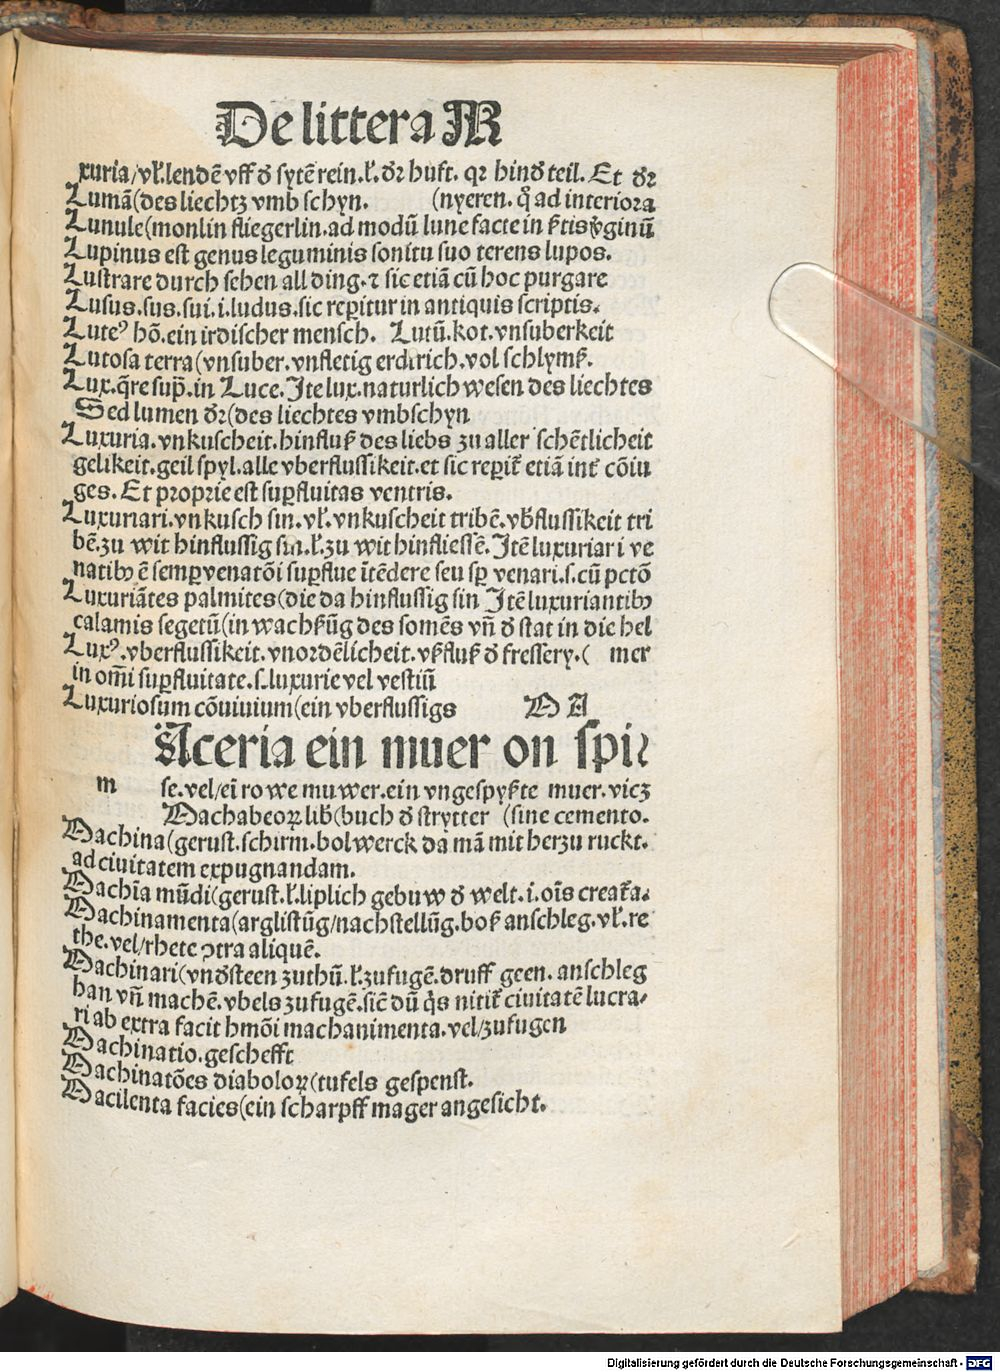 De littera M
xuria/vł.lendē vff ď sytē rein.ł.ďr huft. qꝛ hinď teil. Et ďr
Lumā(des liechtz vmb schyn. (nyeren. q̊ ad interiora
Lunule(monlin fliegerlin.ad modū lune facte in
Lupinus est genus leguminis sonitu suo terens lupos.
Lustrare durch sehen all ding.⁊ sic etiā cū hoc purgare
Lusus.sus.sui.i.ludus.sic reꝑitur in antiquis scriptis.
Luteꝰ hō.ein irdischer mensch. Lutū.kot.vnsuberkeit
Lutosa terra(vnsuber.vnfletig erdtrich.vol schlymß.
Lux.q̄re sup̄.in Luce.Itē lux.naturlich wesen des liechtes
Sed lumen ďr(des liechtes vmbschyn
Luxuria.vnkuscheit.hinfluß des liebs zu aller schētlicheit
geilikeit.geil spyl.alle vberflussikeit.et sic reꝑit̄ etiā int̄ cōiu
ges. Et proprie est suꝑfluitas ventris.
Luxuriari.vnkusch sin.vł.vnkuscheit tribē.vb̄flussikeit tri
bē.zu wit hinflussig sin.ł.zu wit hinfliessē.Itē luxuriari ve
natibꝰ ē semꝑ venatōi suꝑflue ītēdere seu sꝑ venari.s.cū pctō
Luxuriātes palmites(die da hinflussig sin Itē luxuriantibꝰ
calamis segetū(in wachßūg des somēs vn̄ ď stat in die hel
Luxꝰ.vberflussikeit.vnordēlicheit.vßfluß ď fressery.( mer
in om̄i suꝑfluitate.s.luxurie vel vestiū
Luxuriosum cōuiuium(ein vberflussigs M A
Aceria ein muer on spi⸗
m se.vel/eī rowe muwer.ein vngespyßte muer.vicz
Machabeoꝝ lib̄(buch ď strytter (sine cemento.
Machina(gerust.schirm.bolwerck da mā mit herzu ruckt.
ad ciuitatem expugnandam.
Machīa mūdi(gerust.ł.liplich gebuw ď welt.i.oīs creat̄a.
Machinamenta(arglistūg/nachstellūg.boß anschleg.vł.re
the.vel/rhete ꝯtra aliquē.
Machinari(vnďsteen zuthū.ł.zufugē.druff geen. anschleg
han vn̄ machē.vbels zufugē.sic̄ dū q̇s nitit̄ ciuitatē lucra⸗
ri ab extra facit hmōi machanimenta.vel/zufugen
Machinatio.geschefft
Machinatōes diaboloꝝ(tufels gespenst.
Macilenta facies(ein scharpff mager angesicht.
Digitalisierung gefördert durch die Deutsche Forschungsgemeinschaft - DFG